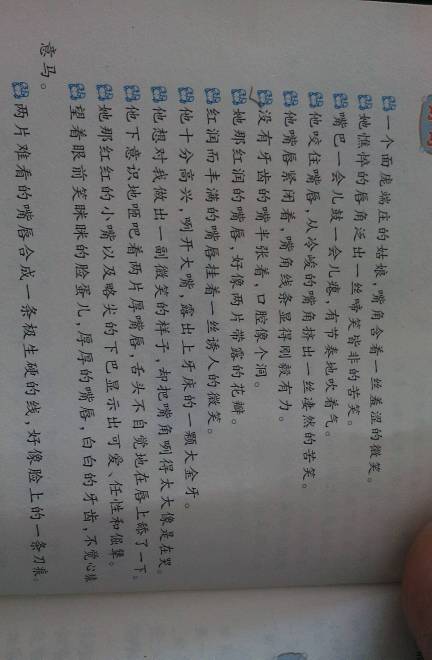 一个面庞端庄的姑娘，嘴角含着一丝羞涩的微笑。
她憔悴的唇角泛出一丝啼笑皆非的苦笑。
嘴巴一会儿鼓一会儿瘪，有节奏地吹着气。
他咬住嘴唇，从冷峻的嘴角挤出一丝凄然的苦笑。
他嘴唇紧闭着，嘴角线条显得刚毅有力。
没有牙齿的嘴半张着，口腔像个洞。
她那红润的嘴唇，好像两片带露的花瓣。
红润而丰满的嘴唇挂着一丝诱人的微笑。
他十分高兴，咧开大嘴，露出上牙床的一颗大金牙。
他想对我做出一副微笑的样子，却把嘴角咧得太大像是在哭。
他下意识地咂吧着两片厚嘴唇，舌头不自觉地在唇上舔了一下。
她那红红的小嘴以及略尖的下巴显示出可爱、任性和倔犟。
望着眼前笑眯眯的脸蛋儿，厚厚的嘴唇，白白的牙齿，不觉心猿
意马。
两片难看的嘴唇合成一条极生硬的线，好像脸上的一条刀痕。